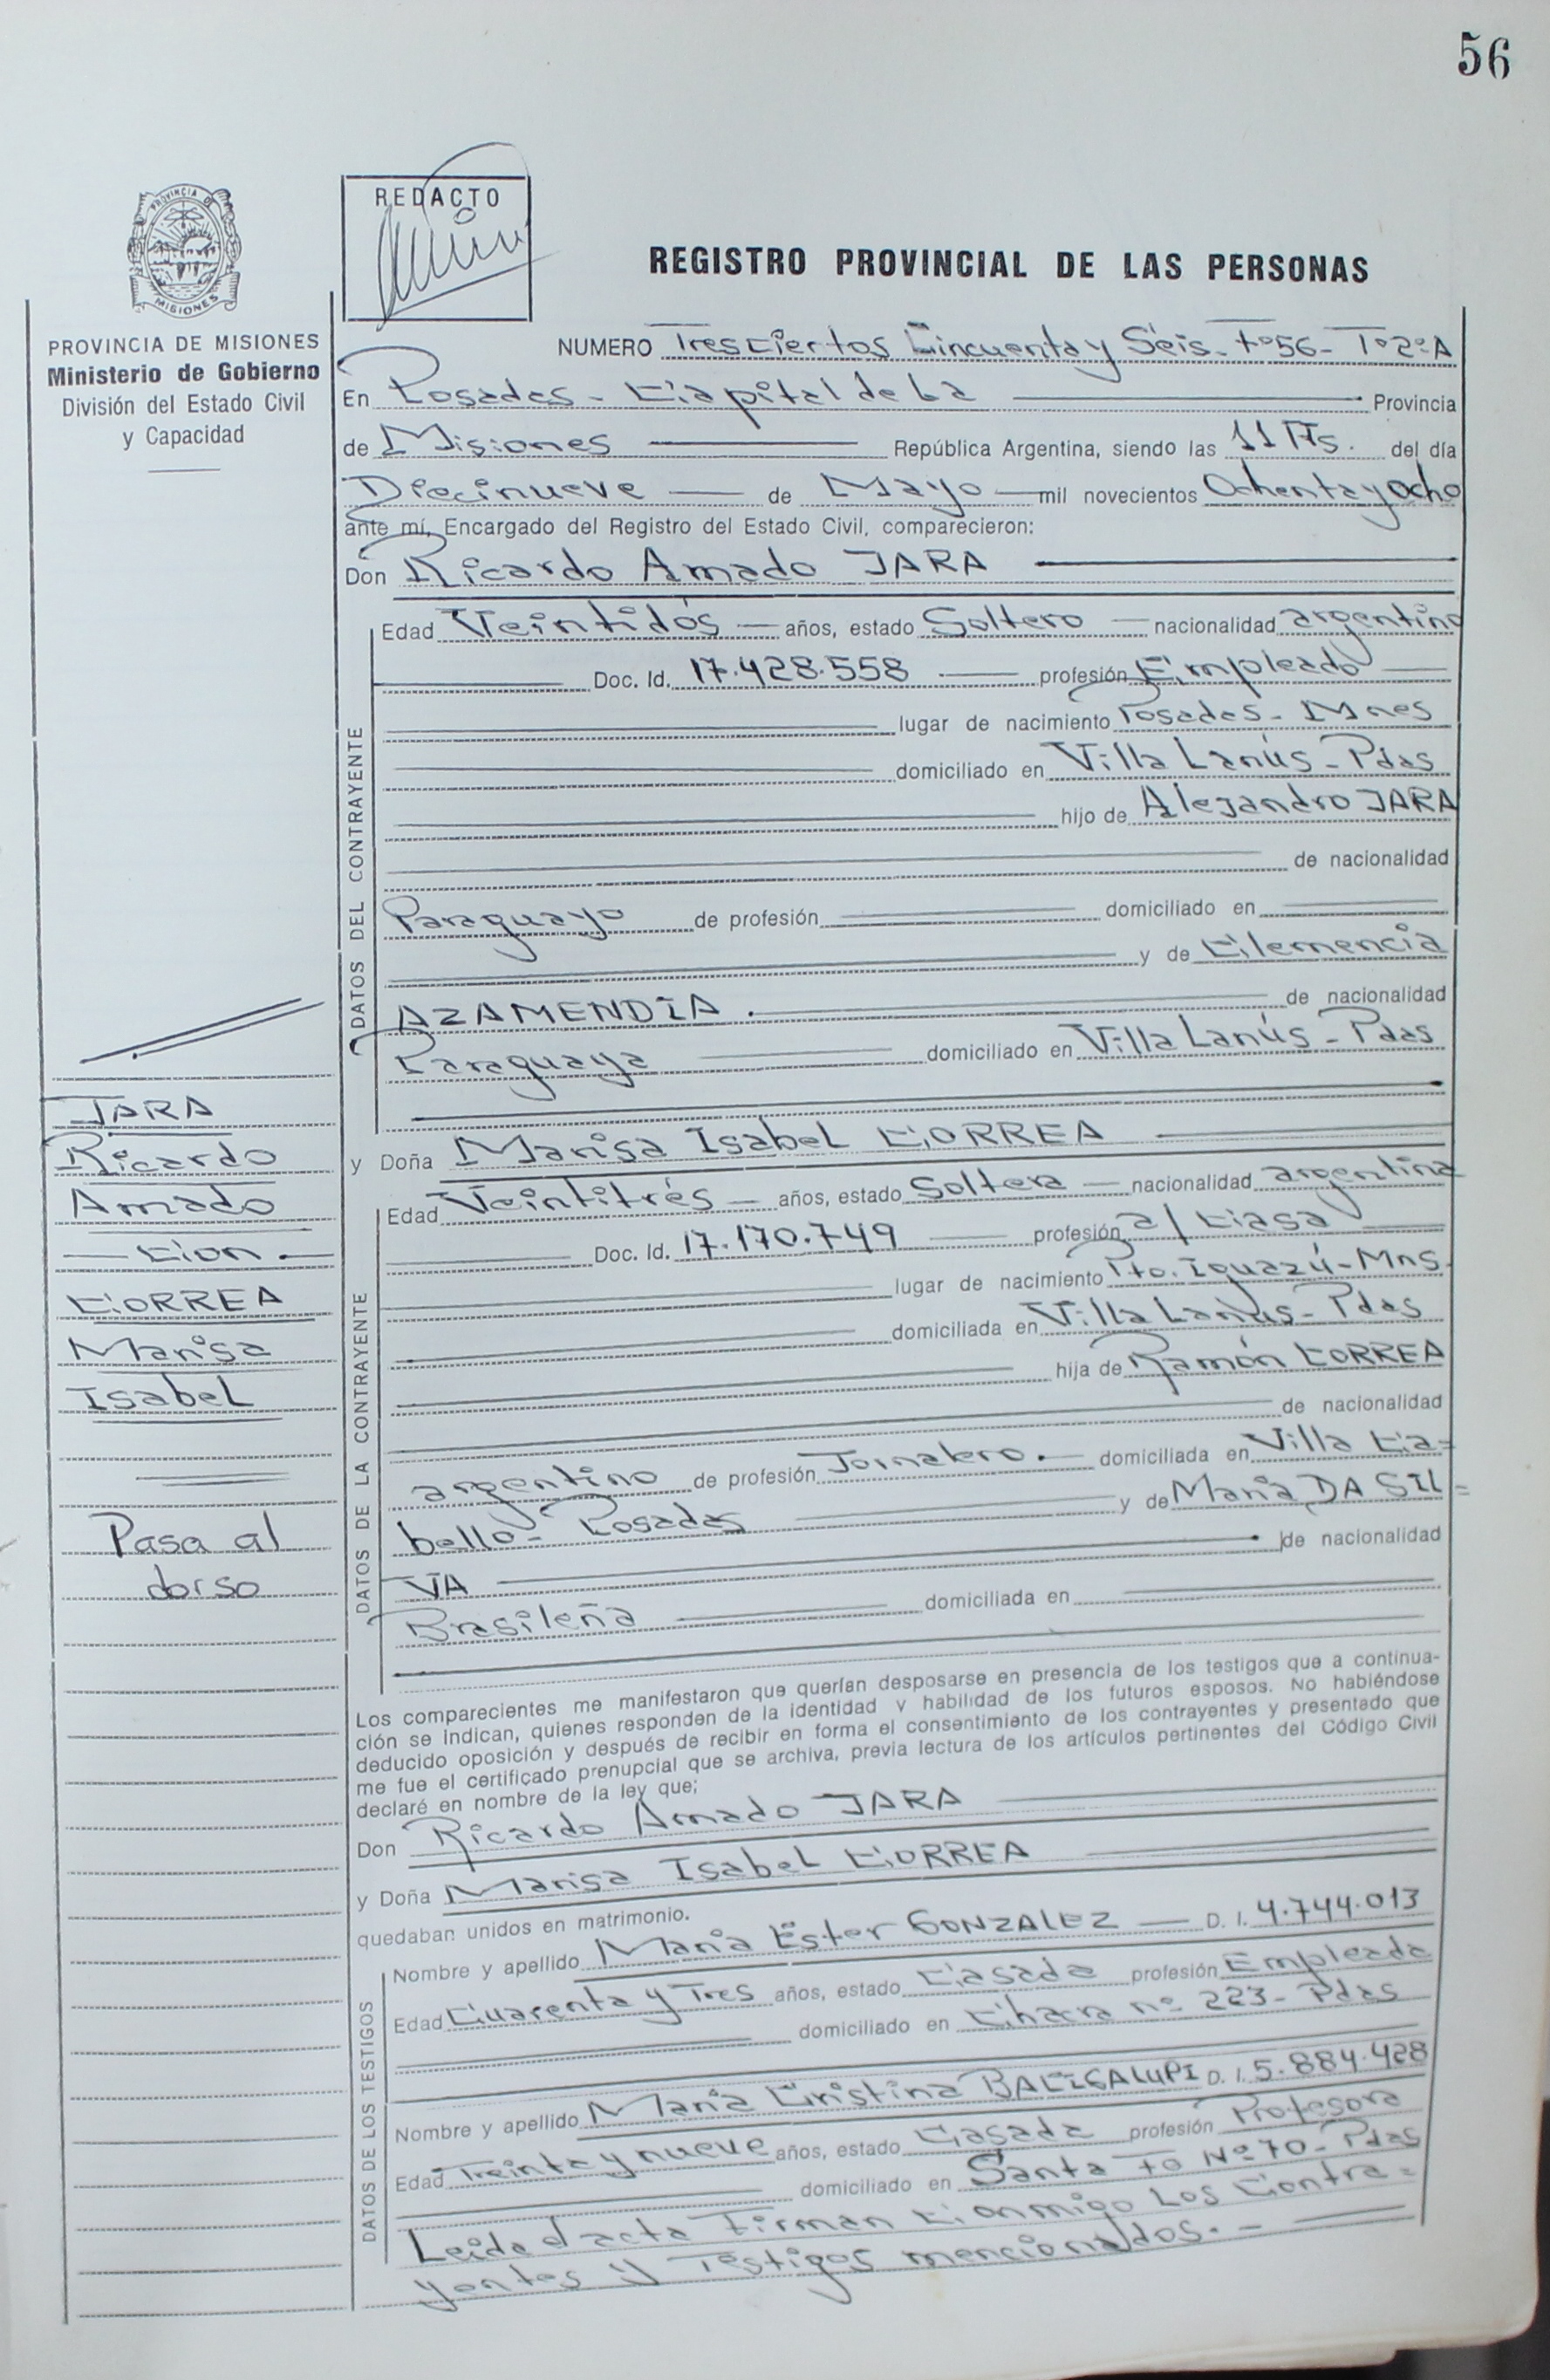 56
PROVINCIA DE
MISIONES
REDACTO
REGISTRO PROVINCIAL DE LAS PERSONAS
PROVINCIA DE MISIONES
Ministerio de Gobierno
División del Estado Civil
y Capacidad
NUMERO Trescientos Cincuenta y Seis - Fº56 - Tº2º A
En Posadas - Capital de La Provincia
de Misiones República Argentina, siendo las 11 Hs. del día
Diecinueve de Mayo mil novecientos Ochenta y Ocho
ante mí, Encargado del Registro del Estado Civil, comparecieron:
Don Ricardo Amado JARA
DATOS DEL CONTRAYENTE
Edad Veintidós años, estado Soltero nacionalidad argentino
Doc. Id. 17.428.558 profesión Empleado
lugar de nacimiento Posadas - Mnes
domiciliado en Villa Lanús - Pdas
hijo de Alejandro JARA
de nacionalidad
Paraguayo de profesión domiciliado en
y de Clemencia
AZAMENDIA . de nacionalidad
Paraguaya domiciliado en Villa Lanús - Pdas
y Doña Marisa Isabel CORREA
DATOS DE LA CONTRAYENTE
Edad Veintitrés años, estado Soltera nacionalidad argentina
Doc. Id. 17.170.749 profesión a/ Casa
lugar de nacimiento Pto. Iguazú - Mns.
domiciliada en Villa Lanús - Pdas
hija de Ramón CORREA
de nacionalidad
argentino de profesión Jornalero. domiciliada en Villa Ca=
bello - Posadas y de María DA SIL=
VA de nacionalidad
Brasileña domiciliada en
JARA
Ricardo
Amado
Con
CORREA
Marisa
Isabel
Pasa al
dorso
Los comparecientes me manifestaron que querían desposarse en presencia de los testigos que a continua-
ción se indican, quienes responden de la identidad y habilidad de los futuros esposos. No habiéndose
deducido oposición y después de recibir en forma el consentimiento de los contrayentes y presentado que
me fue el certificado prenupcial que se archiva, previa lectura de los artículos pertinentes del Código Civil
declaré en nombre de la ley que;
Don Ricardo Amado JARA
y Doña Marisa Isabel CORREA
quedaban unidos en matrimonio.
DATOS DE LOS TESTIGOS
Nombre y apellido María Ester GONZALEZ D. I. 4.744.013
Edad Cuarenta y Tres años, estado Casada profesión Empleada
domiciliado en Chacra nº 223 - Pdas
Nombre y apellido María Cristina BALIGALUPI D. I. 5.884.428
Edad Treinta y nueve años, estado Casada profesión Profesora
domiciliado en Santa Fe Nº 70 - Pdas
Leída el acta Firman Conmigo Los Contra=
yentes y Testigos mencionados. -